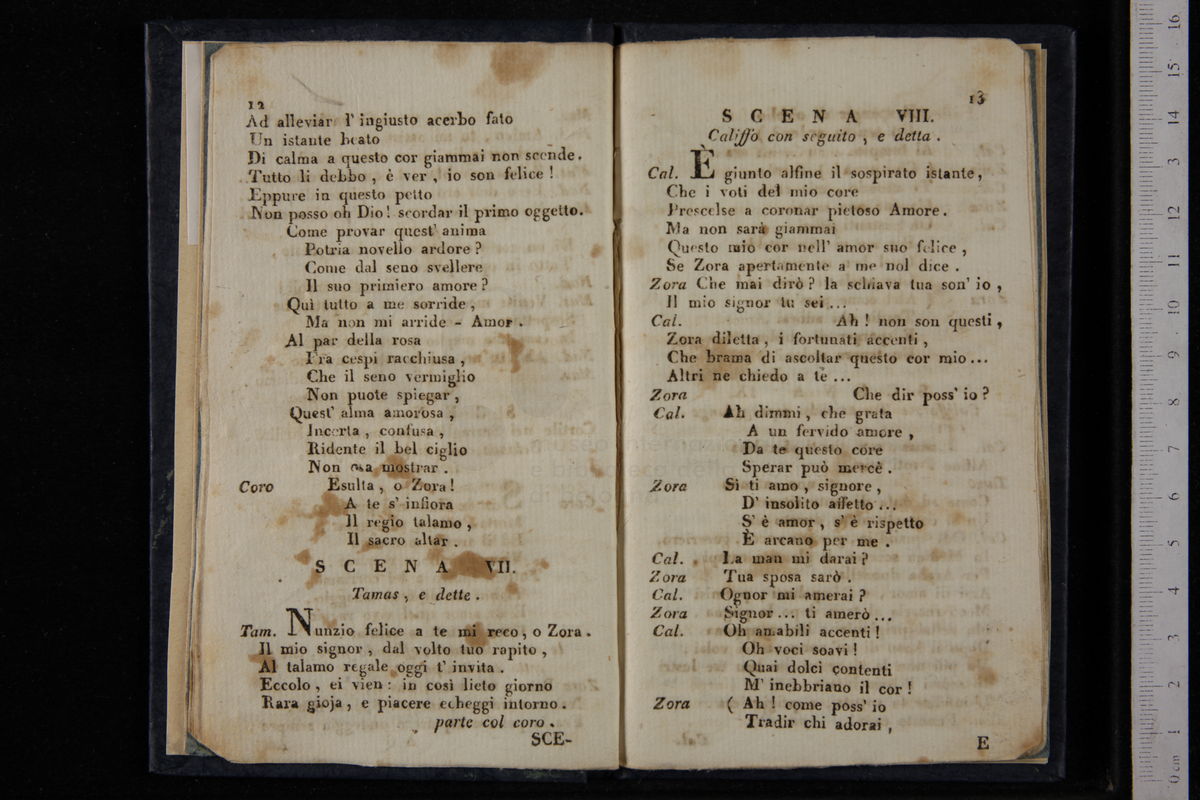 12
Ad alleviar l' ingiusto acerbo fato
Un istante beato
Di calma a questo cor giammai non scende.
Tutto li debbo , è ver , io son felice !
Eppure in questo petto
Non posso oh Dio! scordar il primo oggetto.
Come provar quest' anima
Potria novello ardore ?
Come dal seno svellere
Il suo primiero amore ?
Quì tutto a me sorride ,
Ma non mi arride - Amor .
Al par della rosa
Fra cespi racchiusa ,
Che il seno vermiglio
Non puote spiegar ,
Quest' alma amorosa ,
Incerta , confusa ,
Ridente il bel ciglio
Non osa mostrar .
Coro Esulta , o Zora !
A te s' infiora
Il regio talamo ,
Il sacro altar .
SCENA VII.
Tamas , e dette .
Tam. Nunzio felice a te mi reco , o Zora .
Il mio signor , dal volto tuo rapito ,
Al talamo regale oggi t' invita .
Eccolo , ei vien : in così lieto giorno
Rara gioja , e piacere echeggi intorno .
parte col coro .
SCE-
13
SCENA VIII.
Califfo con seguito , e detta .
Cal. È giunto alfine il sospirato istante,
Che i voti del mio core
Prescelse a coronar pietoso Amore.
Ma non sarà giammai
Questo mio cor nell' amor suo felice ,
Se Zora apertamente a me nol dice .
Zora Che mai dirò ? la schiava tua son' io ,
Il mio signor tu sei ...
Cal. Ah ! non son questi ,
Zora diletta , i fortunati accenti ,
Che brama di ascoltar questo cor mio ...
Altri ne chiedo a te ...
Zora Che dir poss' io ?
Cal. Ah dimmi , che grata
A un fervido amore ,
Da te questo core
Sperar può mercè .
Zora Sì ti amo , signore ,
D' insolito affetto ...
S' è amor , s' è rispetto
È arcano per me .
Cal. La man mi darai ?
Zora Tua sposa sarò .
Cal. Ognor mi amerai ?
Zora Signor ... ti amerò ...
Cal. Oh amabili accenti !
Oh voci soavi !
Quai dolci contenti
M' inebbriano il cor !
Zora ( Ah ! come poss' io
Tradir chi adorai ,
E